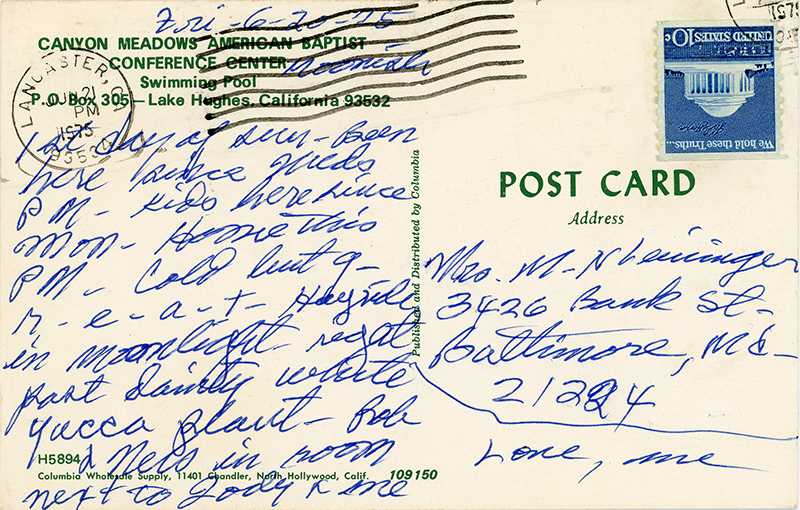 Fri - 6-20-75
CANYON MEADOWS AMERICAN BAPTIST
CONFERENCE CENTER Noonish
Swimming Pool
P.O. Box 305 — Lake Hughes, California 93532
LANCASTER, CA
JUN 21
PM
1975
93534
1st day of sun - Been
here since Weds
PM - Kids here since
Mon - Home this
PM - Cold but g-
r-e-a-t - Hayride
in moonlight
past dainty white
yucca plant - Bob
& Nels in room
next to Jody & me
H5894
Columbia Wholesale Supply, 11401 Chandler, North Hollywood, Calif. 109150
Published and Distributed by Columbia
We hold these Truths...
UNITED STATES 10c
1975
POST CARD
Address
Mrs. M-N Leininger
3426 Bank St-
Baltimore, Md-
21224
Love, me